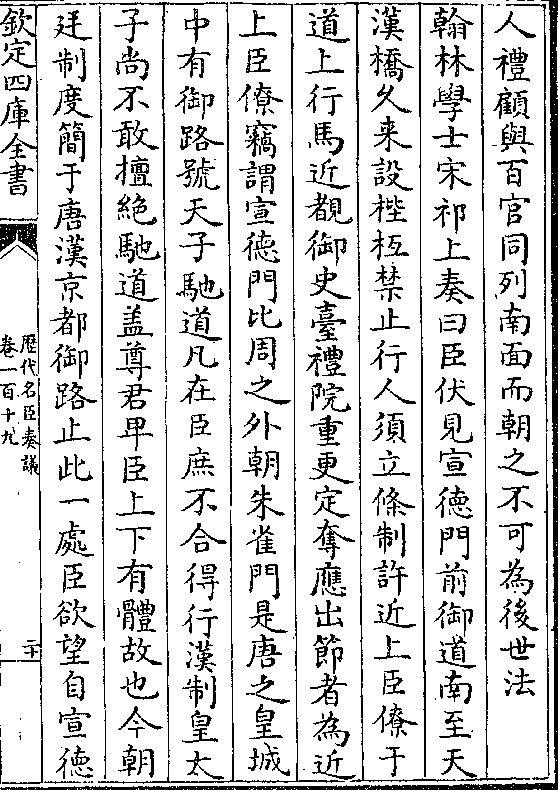 人禮顧與百官同列南面而朝之不可為後世法
翰林學士宋祁上奏曰臣伏見宣德門前御道南至天
漢橋久来設梐枑禁止行人須立條制許近上臣僚于
道上行馬近覩御史臺禮院重更定奪應出節者為近
上臣僚竊謂宣德門比周之外朝朱雀門是唐之皇城
中有御路號天子馳道凡在臣庶不合得行漢制皇太
子尚不敢擅絶馳道盖尊君卑臣上下有體故也今朝
廷制度簡于唐漢京都御路止此一處臣欲望自宣德
欽定四庫全書
歴代名臣奏議
卷一百十九
二十